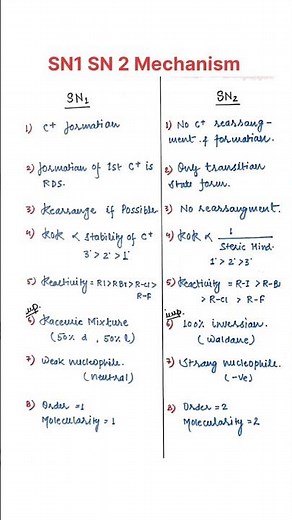 SN1 SN 2 Mechanism
SN1
1) C+ formation
2) formation of 1st C+ is
RDS.
3) Rearrange if Possible
4) ROR ∝ Stability of C+
3° > 2° > 1°
5) Reactivity = RI > RBr > R-Cl >
R-F
imp.
6) Racemic Mixture
(50% d, 50% l)
7) Weak nucleophile.
(neutral)
8) Order = 1
Molecularity = 1
SN2
1) No C+ rearrang-
ment & formation.
2) Only transition
State form.
3) No rearrangment.
4) ROR ∝ 1
Steric Hind.
1° > 2° > 3°
5) Reactivity = R-I > R-Br
> R-Cl > R-F
imp.
6) 100% inversion.
(Waldane)
7) Strong nucleophile.
(-ve)
8) Order = 2
Molecularity = 2